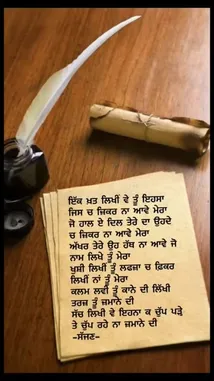 ਇੱਕ ਖ਼ਤ ਲਿਖੀਂ ਵੇ ਤੂੰ ਇਹਸਾ
ਜਿਸ ਚ ਜ਼ਿਕਰ ਨਾ ਆਵੇ ਮੇਰਾ
ਜੋ ਹਾਲ ਏ ਦਿਲ ਤੇਰੇ ਦਾ ਉਹਦੇ
ਚ ਜ਼ਿਕਰ ਨਾ ਆਵੇ ਮੇਰਾ
ਅੱਖਰ ਤੇਰੇ ਉਹ ਹੱਥ ਨਾ ਆਵੇ ਜੋ
ਨਾਮ ਲਿਖੇ ਤੂੰ ਮੇਰਾ
ਖੁਸ਼ੀ ਲਿਖੀਂ ਤੂੰ ਲਫਜ਼ਾ ਚ ਫ਼ਿਕਰ
ਲਿਖੀਂ ਨਾਂ ਤੂੰ ਮੇਰਾ
ਕਲਮ ਲਵੀਂ ਤੂੰ ਕਾਨੇ ਦੀ ਲਿੱਖੀ
ਤਰਜ਼ ਤੂੰ ਜ਼ਮਾਨੇ ਦੀ
ਸੱਚ ਲਿਖੀ ਵੇ ਇਹਨਾ ਕ ਚੁੱਪ ਪੜ੍ਹੇ
ਤੇ ਚੁੱਪ ਰਹੇ ਨਾ ਜ਼ਮਾਨੇ ਦੀ
-ਸੱਜਣ-